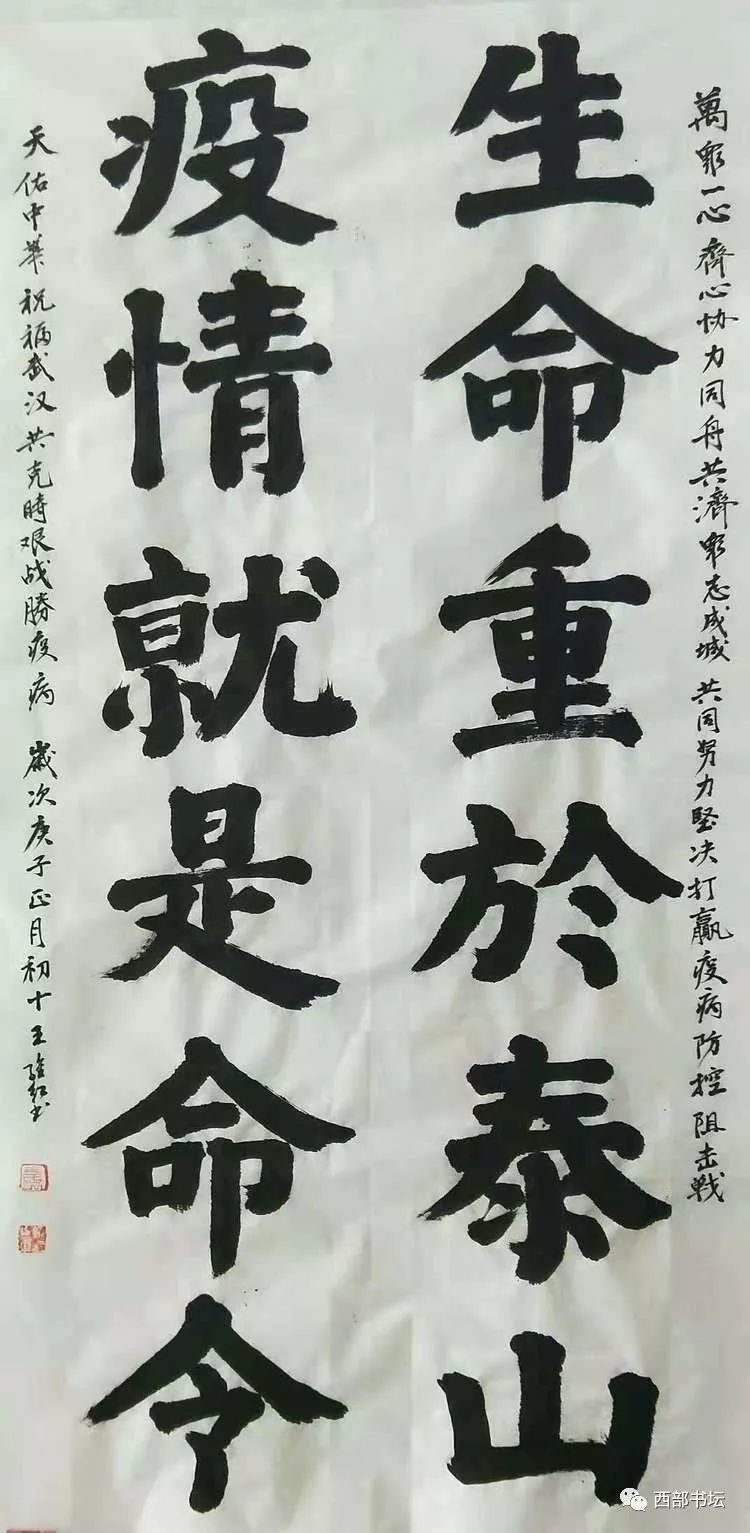 萬眾一心齊心协力同舟共濟眾志成城共同努力堅决打贏疫病防控阻击戰
生命重於泰山
疫情就是命令
天佑中華祝福武汉共克時艰战勝疫病歲次庚子正月初十王維红书
西部书坛